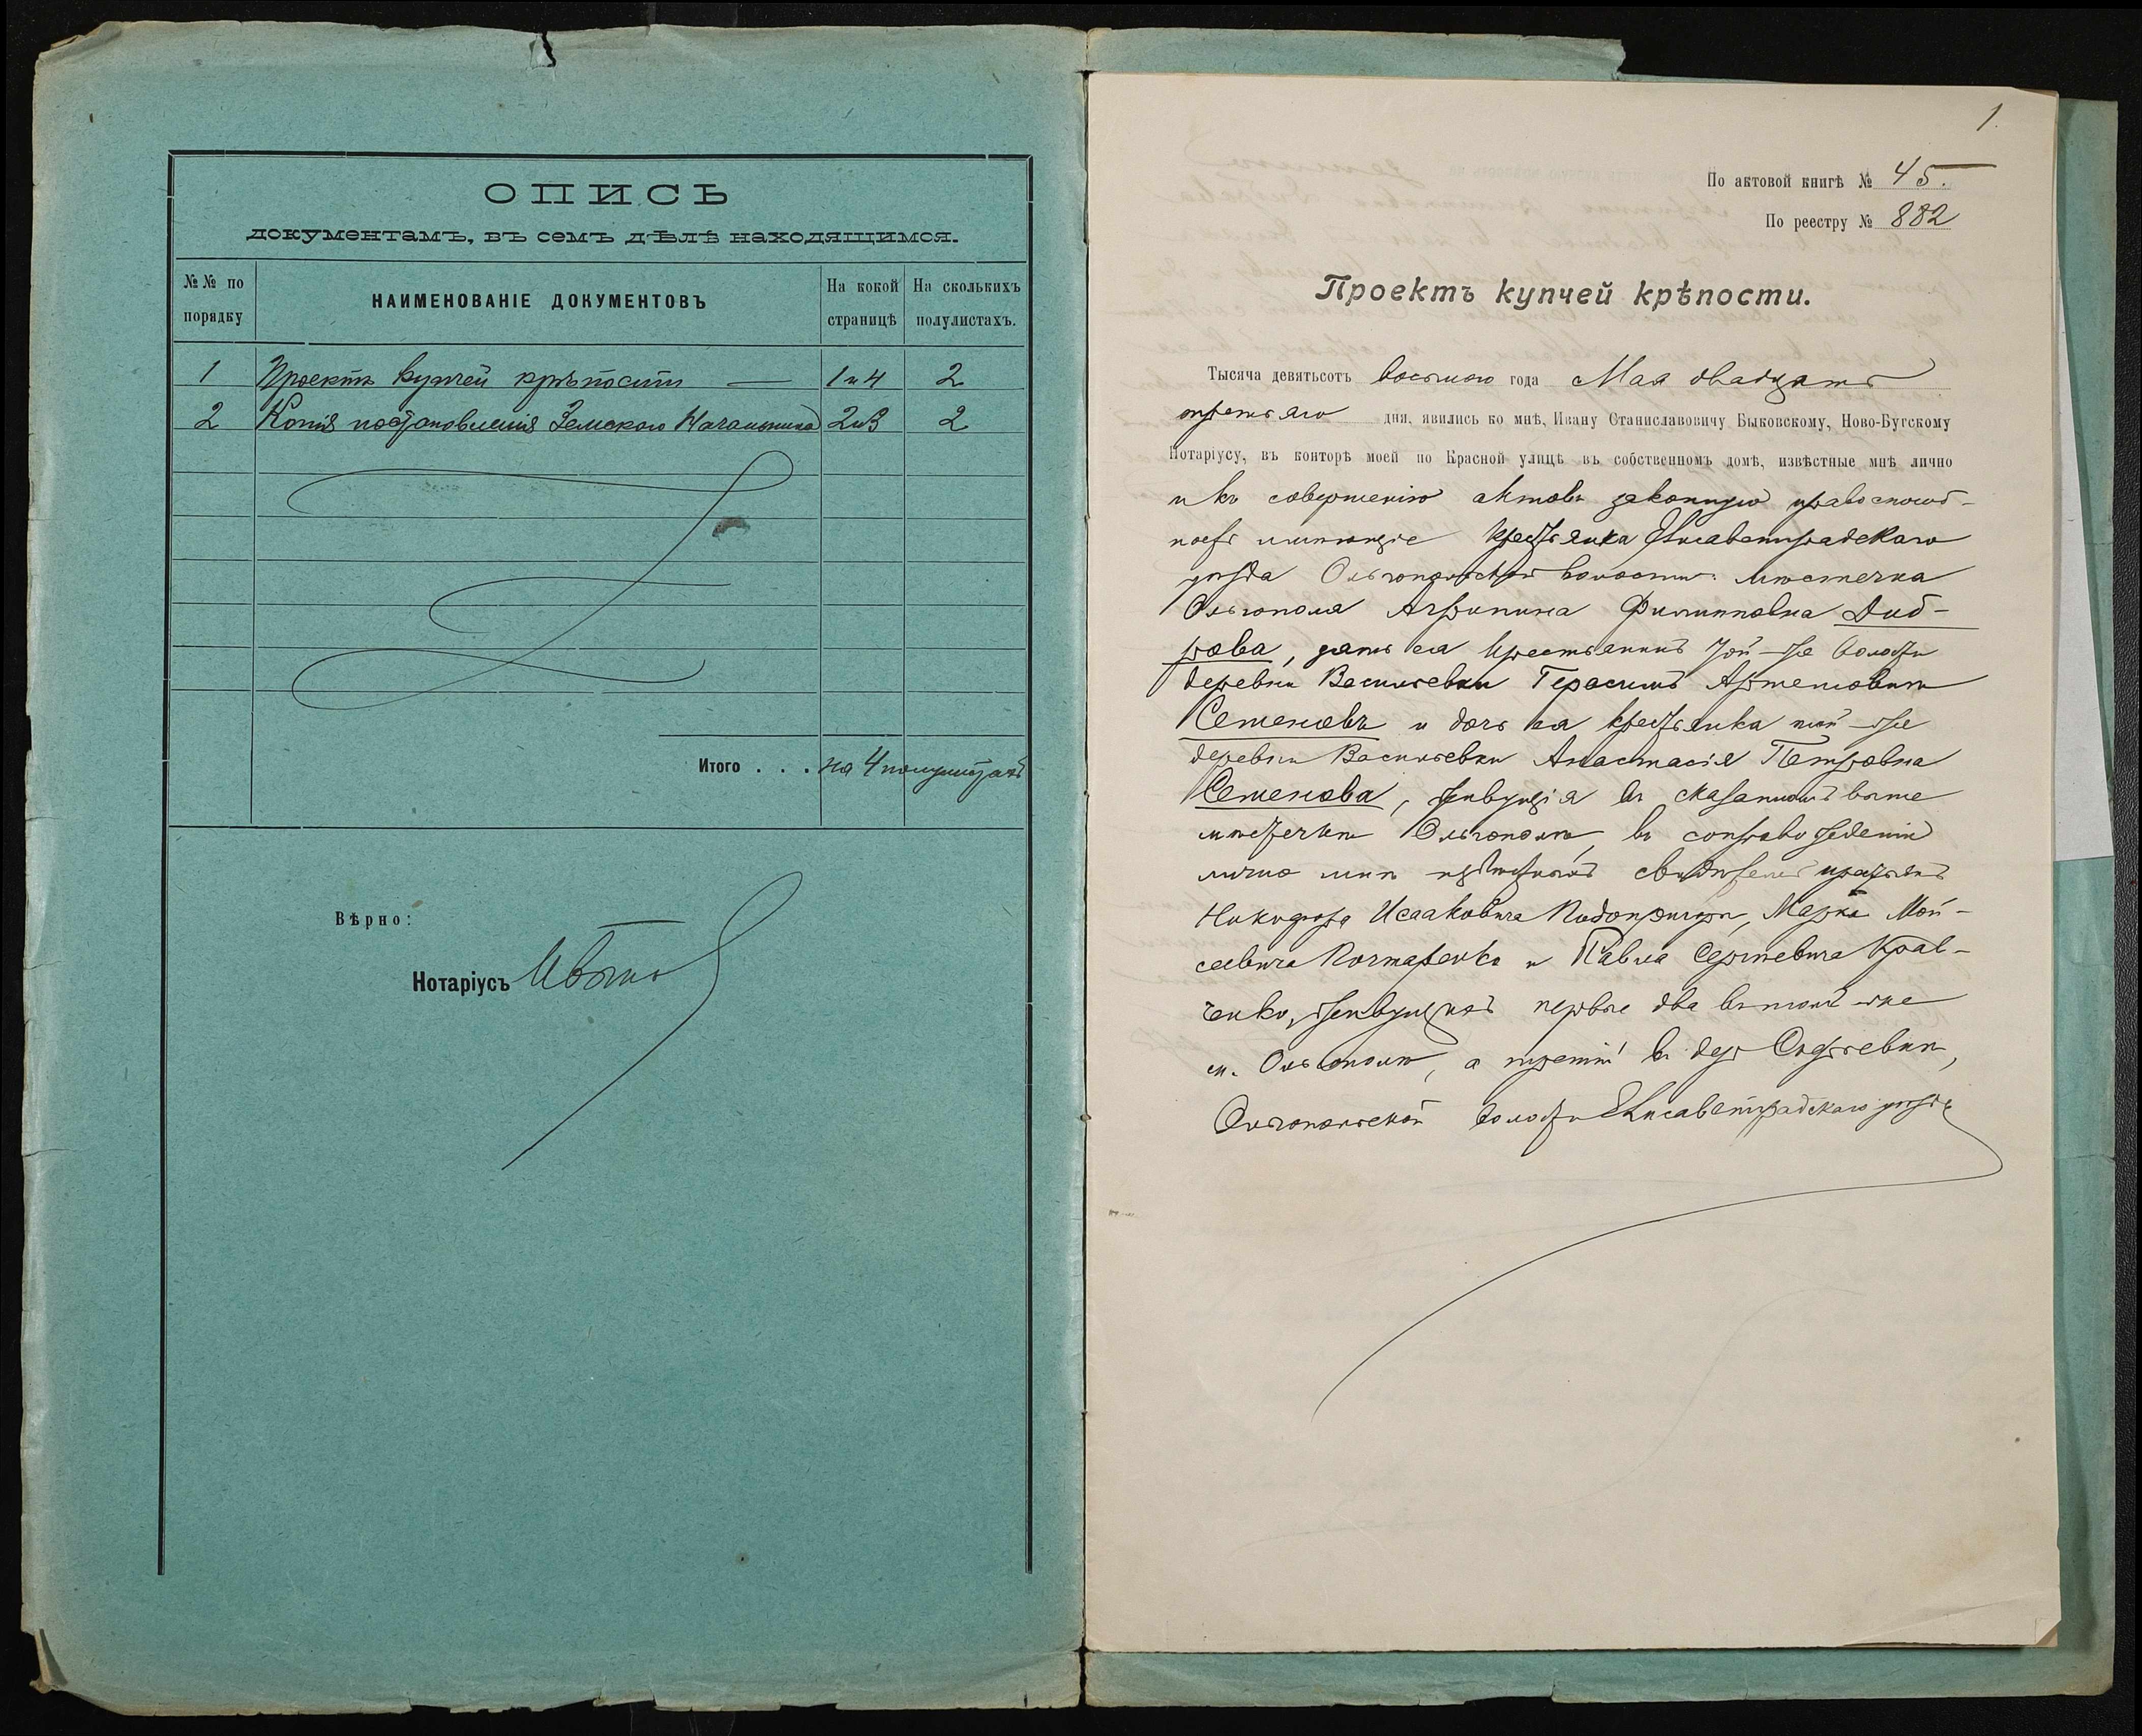 ОПИСЬ
документамъ, въ семъ дѣлѣ находящимся.
№№ по порядку
НАИМЕНОВАНІЕ ДОКУМЕНТОВЪ
На какой страницѣ
На сколькихъ полулистахъ.
1 Проектъ купчей крѣпости — 1 и 4 2
2 Копія постановленія Земскаго Начальника 2 и 3 2
Итого . . . на 4 полулистахъ
Вѣрно:
Нотаріусъ
1.
По актовой книгѣ № 45.
По реестру № 882
Проектъ купчей крѣпости.
Тысяча девятьсотъ восьмого года Мая двадцать
третьяго дня, явились ко мнѣ, Ивану Станиславовичу Быковскому, Ново-Бугскому
Нотаріусу, въ конторѣ моей по Красной улицѣ въ собственномъ домѣ, извѣстные мнѣ лично
и къ совершенію актовъ законную правоспособ-
ность имѣющіе крестьянка Елисаветградскаго
уѣзда Ольгопольской волости мѣстечка
Ольгополя Агрипина Филипповна Диб-
рова, зять ея крестьянинъ той-же волости
деревни Васильевки Герасимъ Артемовичъ
Семеновъ и дочь ея крестьянка той-же
деревни Васильевки Анастасія Петровна
Семенова, живущія въ сказанномъ выше
мѣстечкѣ Ольгополѣ, въ сопровожденіи
лично мнѣ извѣстныхъ свидѣтелей крестьянъ
Никифора Исааковича Подопригоры, Марка Мой-
сеевича Почтаренко и Павла Сергѣевича Крав-
ченко, живущихъ первые два въ томъ же
м. Ольгополѣ, а третій въ дер. Софіевкѣ,
Ольгопольской волости Елисаветградскаго уѣзда